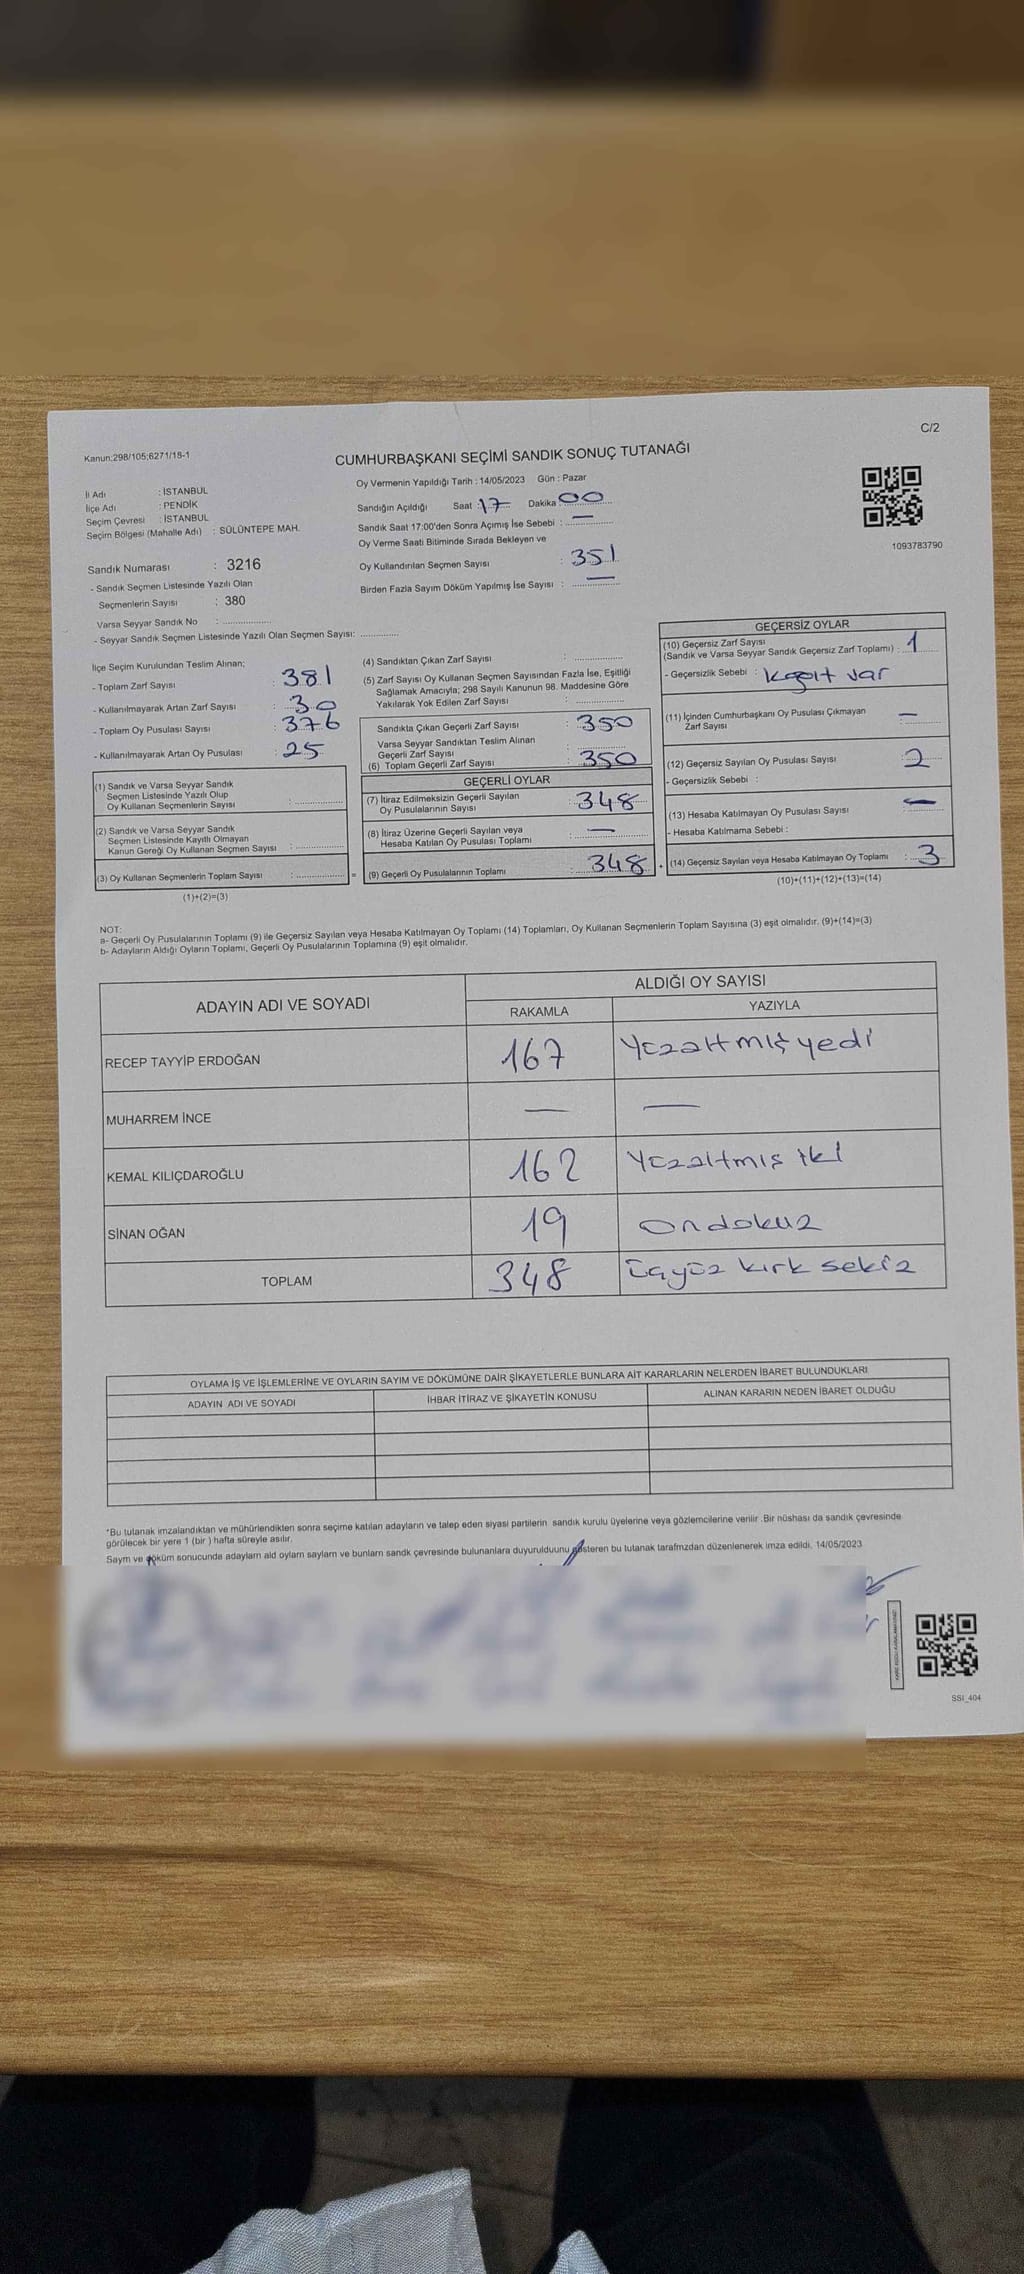 C/2
Kanun:298/105;6271/18-1
CUMHURBAŞKANI SEÇİMİ SANDIK SONUÇ TUTANAĞI
İl Adı : İSTANBUL
İlçe Adı : PENDİK
Seçim Çevresi : İSTANBUL
Seçim Bölgesi (Mahalle Adı) : SÜLÜNTEPE MAH.
Sandık Numarası : 3216
- Sandık Seçmen Listesinde Yazılı Olan
Seçmenlerin Sayısı : 380
Varsa Seyyar Sandık No : ..................
- Seyyar Sandık Seçmen Listesinde Yazılı Olan Seçmen Sayısı: ..............
Oy Vermenin Yapıldığı Tarih : 14/05/2023 Gün : Pazar
Sandığın Açıldığı Saat : 17 Dakika 00
Sandık Saat 17:00'den Sonra Açımış İse Sebebi : —
Oy Verme Saati Bitiminde Sırada Bekleyen ve
Oy Kullandırılan Seçmen Sayısı : 351
Birden Fazla Sayım Döküm Yapılmış İse Sayısı : —
1093783790
İlçe Seçim Kurulundan Teslim Alınan;
- Toplam Zarf Sayısı : 381
- Kullanılmayarak Artan Zarf Sayısı : 30
- Toplam Oy Pusulası Sayısı : 376
- Kullanılmayarak Artan Oy Pusulası : 25
(1) Sandık ve Varsa Seyyar Sandık
Seçmen Listesinde Yazılı Olup
Oy Kullanan Seçmenlerin Sayısı : ..................
(2) Sandık ve Varsa Seyyar Sandık
Seçmen Listesinde Kayıtlı Olmayan
Kanun Gereği Oy Kullanan Seçmen Sayısı : ..................
(3) Oy Kullanan Seçmenlerin Toplam Sayısı : .................. =
(1)+(2)=(3)
(4) Sandıktan Çıkan Zarf Sayısı : ..................
(5) Zarf Sayısı Oy Kullanan Seçmen Sayısından Fazla İse, Eşitliği
Sağlamak Amacıyla; 298 Sayılı Kanunun 98. Maddesine Göre
Yakılarak Yok Edilen Zarf Sayısı : ..................
Sandıkta Çıkan Geçerli Zarf Sayısı : 350
Varsa Seyyar Sandıktan Teslim Alınan
Geçerli Zarf Sayısı : ..................
(6) Toplam Geçerli Zarf Sayısı : 350
GEÇERLİ OYLAR
(7) İtiraz Edilmeksizin Geçerli Sayılan
Oy Pusulalarının Sayısı : 348
(8) İtiraz Üzerine Geçerli Sayılan veya
Hesaba Katılan Oy Pusulası Toplamı : —
(9) Geçerli Oy Pusulalarının Toplamı : 348
GEÇERSİZ OYLAR
(10) Geçersiz Zarf Sayısı
(Sandık ve Varsa Seyyar Sandık Geçersiz Zarf Toplamı) : 1
- Geçersizlik Sebebi : kağıt var
(11) İçinden Cumhurbaşkanı Oy Pusulası Çıkmayan
Zarf Sayısı : —
(12) Geçersiz Sayılan Oy Pusulası Sayısı : 2
- Geçersizlik Sebebi :
(13) Hesaba Katılmayan Oy Pusulası Sayısı : —
- Hesaba Katılmama Sebebi :
(14) Geçersiz Sayılan veya Hesaba Katılmayan Oy Toplamı : 3
(10)+(11)+(12)+(13)=(14)
NOT:
a- Geçerli Oy Pusulalarının Toplamı (9) ile Geçersiz Sayılan veya Hesaba Katılmayan Oy Toplamı (14) Toplamları, Oy Kullanan Seçmenlerin Toplam Sayısına (3) eşit olmalıdır. (9)+(14)=(3)
b- Adayların Aldığı Oyların Toplamı, Geçerli Oy Pusulalarının Toplamına (9) eşit olmalıdır.
ADAYIN ADI VE SOYADI
ALDIĞI OY SAYISI
RAKAMLA YAZIYLA
RECEP TAYYİP ERDOĞAN 167 Yüzaltmış yedi
MUHARREM İNCE — —
KEMAL KILIÇDAROĞLU 162 Yüzaltmış iki
SİNAN OĞAN 19 Ondokuz
TOPLAM 348 üçyüz kırk sekiz
OYLAMA İŞ VE İŞLEMLERİNE VE OYLARIN SAYIM VE DÖKÜMÜNE DAİR ŞİKAYETLERLE BUNLARA AİT KARARLARIN NELERDEN İBARET BULUNDUKLARI
ADAYIN ADI VE SOYADI İHBAR İTİRAZ VE ŞİKAYETİN KONUSU ALINAN KARARIN NEDEN İBARET OLDUĞU
*Bu tutanak imzalandıktan ve mühürlendikten sonra seçime katılan adayların ve talep eden siyasi partilerin sandık kurulu üyelerine veya gözlemcilerine verilir .Bir nüshası da sandık çevresinde
görülecek bir yere 1 (bir ) hafta süreyle asılır.
Saym ve döküm sonucunda adaylarn ald oylarn saylarn ve bunlarn sandk çevresinde bulunanlara duyurulduunu gösteren bu tutanak tarafmzdan düzenlenerek imza edildi. 14/05/2023
SSI_404